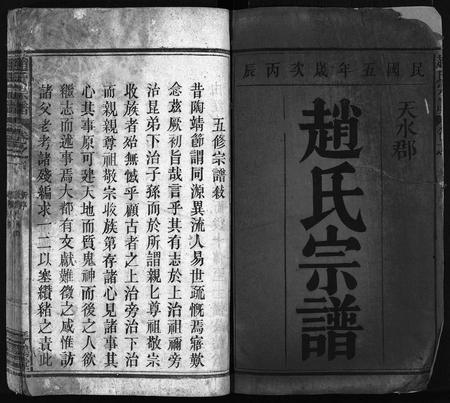 民國五年歲次丙辰
天水郡
趙氏宗譜
五修宗譜敍
昔陶靖節謂同源異流人易世疏慨焉寤歎
念茲厥初旨哉言乎其有志於上治祖禰旁
治昆弟下治子孫而於所謂親親尊祖敬宗
收族者始無憾乎顧古者之上治旁治下治
而親親尊祖敬宗收族第存諸心見諸事其
心其事原可建天地而質鬼神而後之人欲
繼志而述事焉大都有文獻難徵之感惟訪
諸父老考諸殘編求一二以塞纘緒之責此